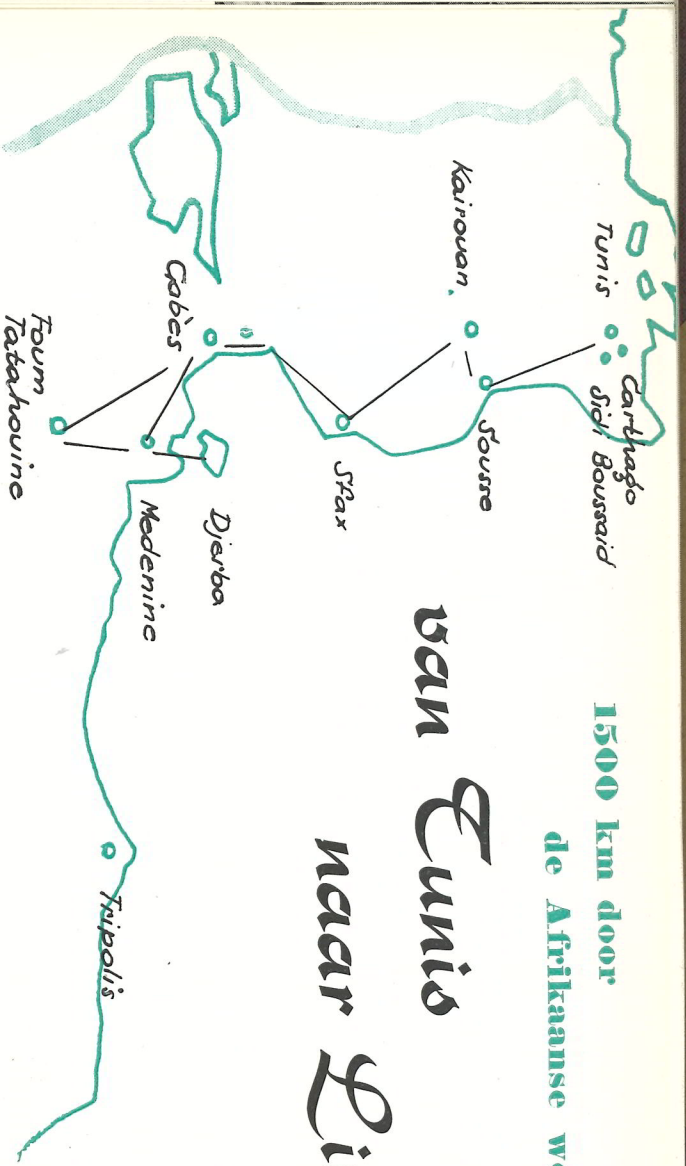 1500 km door
de Afrikaanse
van Tunis
naar Li
Tunis
Carthago
Sidi Boussaid
Kairouan
Sousse
Sfax
Gabès
Djerba
Medenine
Foum
Tatahouine
Tripolis